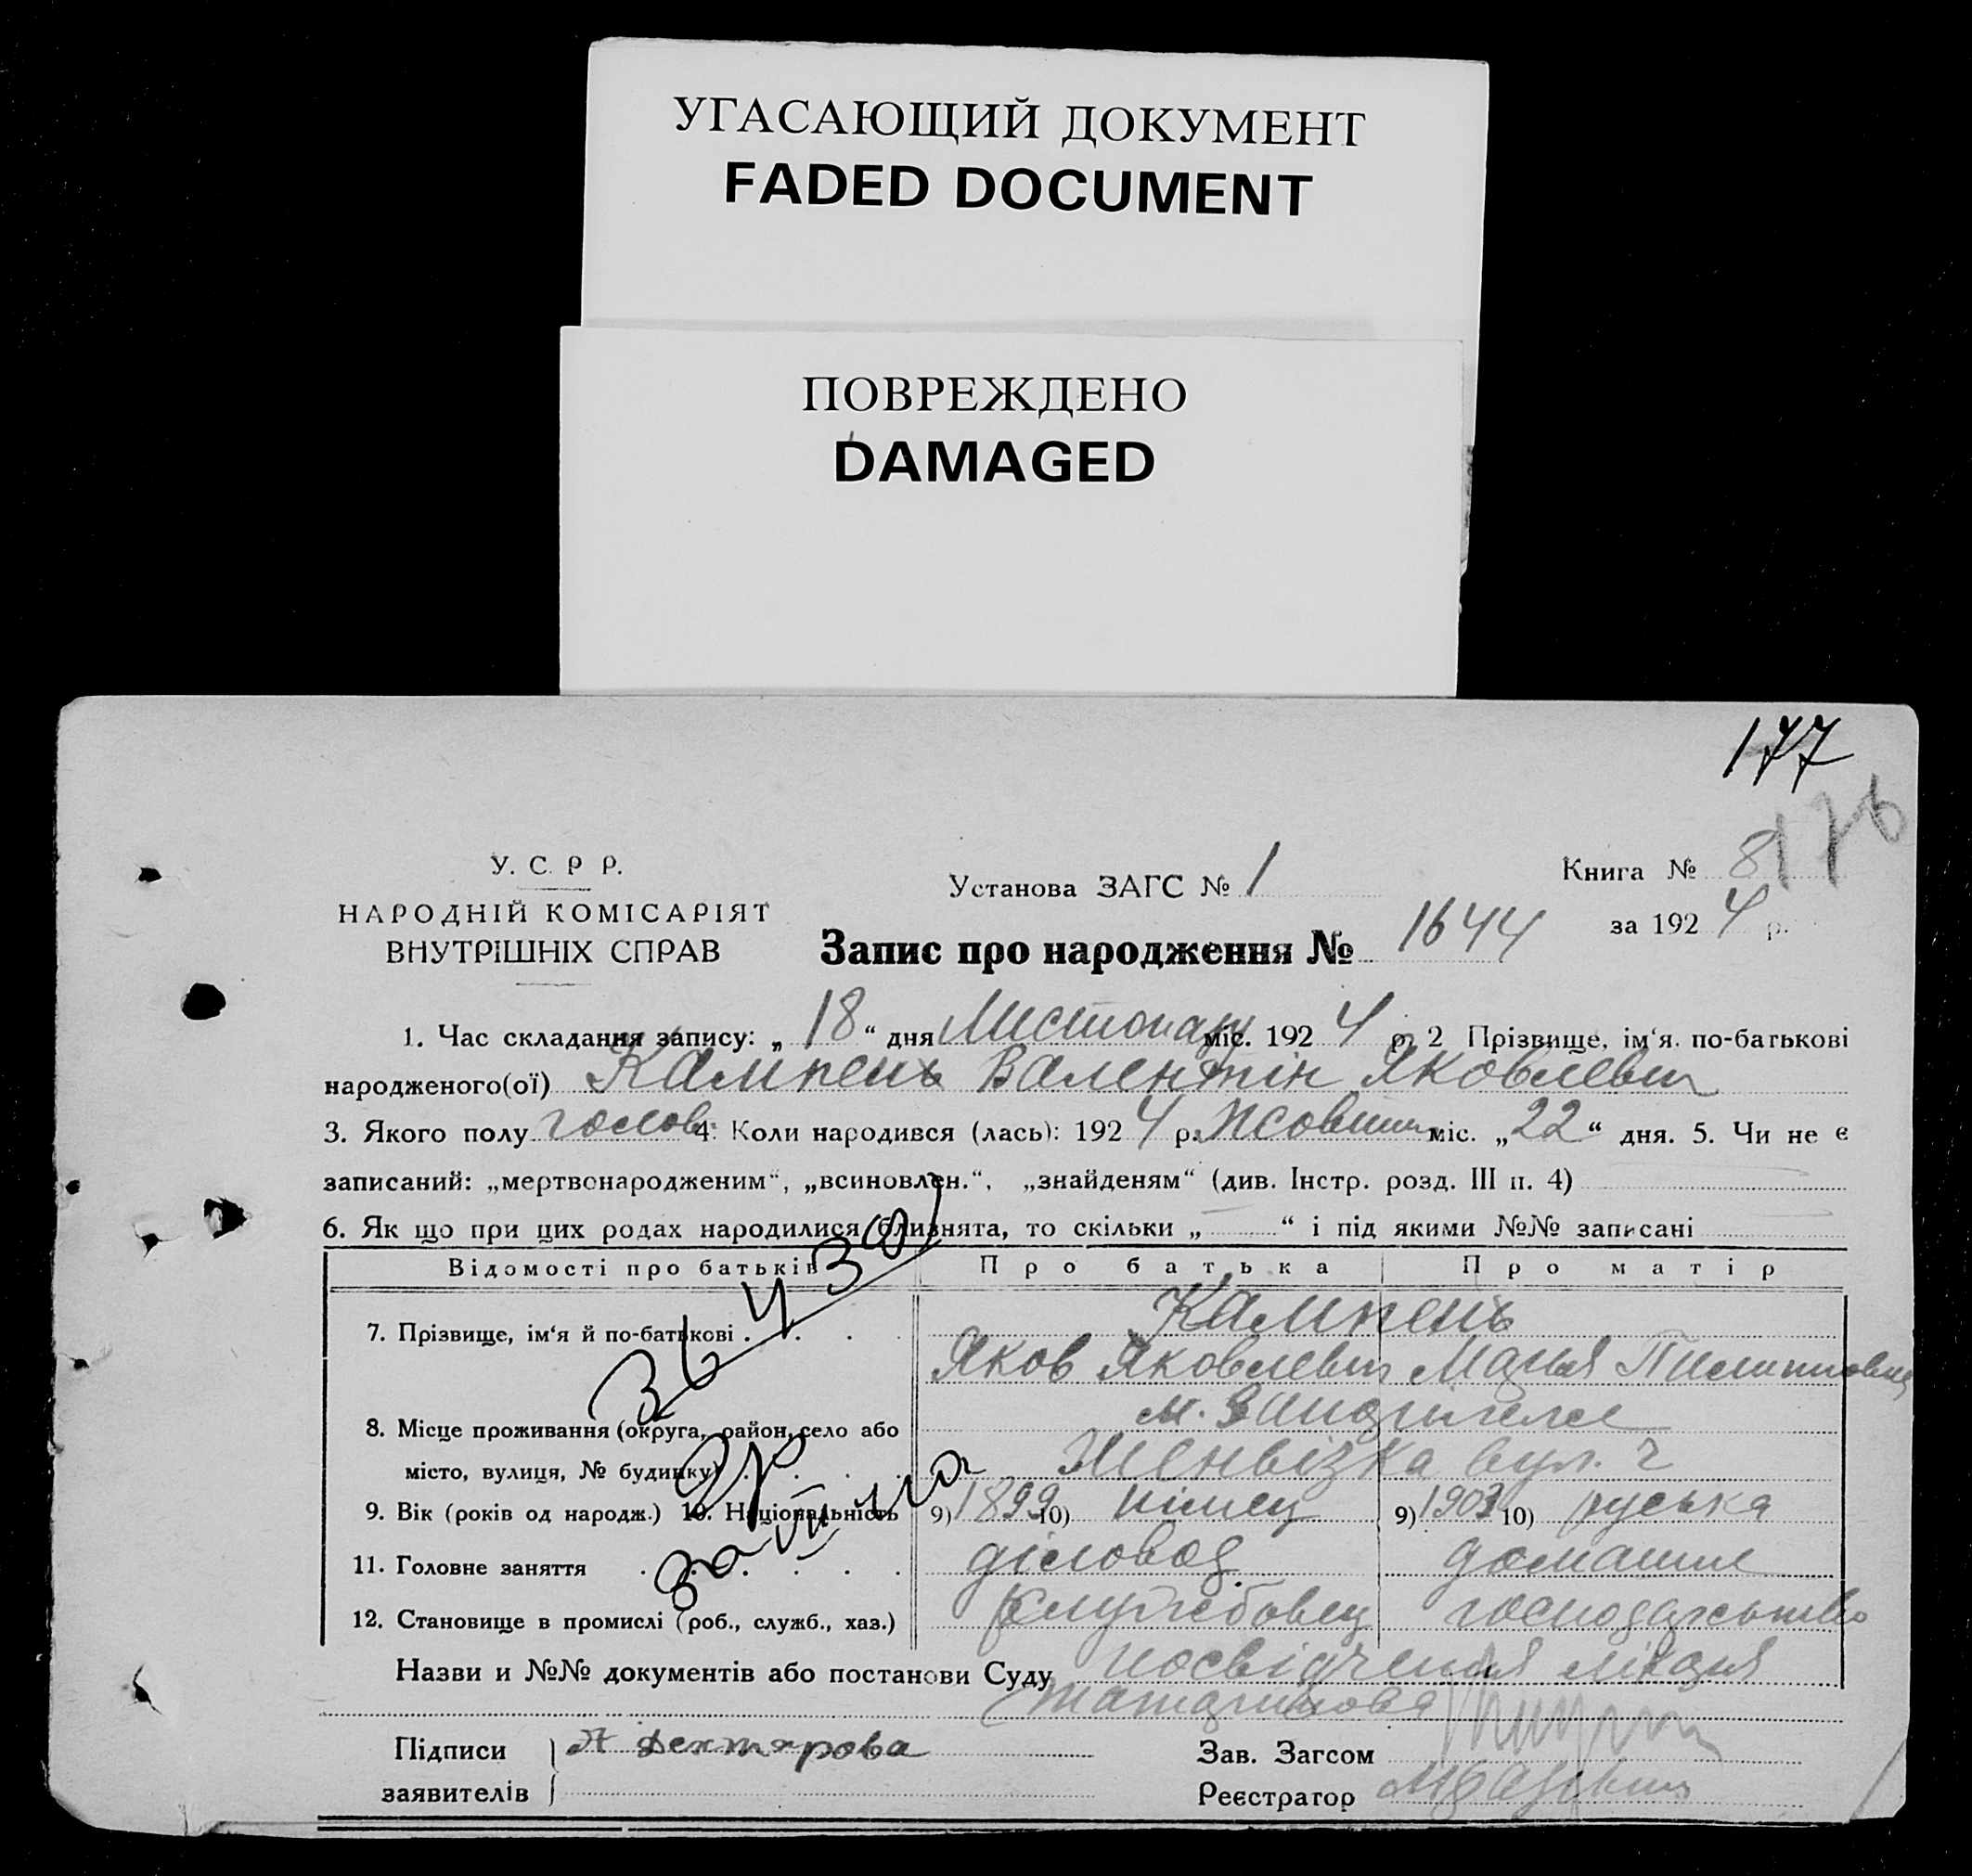 УГАСАЮЩИЙ ДОКУМЕНТ
FADED DOCUMENT
ПОВРЕЖДЕНО
DAMAGED
177
176
У. С. Р Р.
НАРОДНІЙ КОМІСАРІЯТ
ВНУТРІШНІХ СПРАВ
Установа ЗАГС № 1
Книга № 8
за 1924 р.
Запис про народження № 1644
1. Час складання запису: „18“ дня Листопаду міс. 1924 р. 2 Прізвище, ім‘я, по-батькові
народженого(ої) Кампень Валентін Яковлевич
3. Якого полу 4. Коли народився (лась): 1924 р. Жовтня міс. „22“ дня. 5. Чи не є
записаний: „мертвонародженим“, „всиновлен.“, „знайденям“ (див. Інстр. розд. III п. 4)
6. Як що при цих родах народилися близнята, то скільки „ “ і під якими №№ записані
Відомості про батьків Про батька Про матір
7. Прізвище, ім‘я й по-батькові Кампень
Яков Яковлевич Марія Пилиповна
8. Місце проживання (округа, район, село або
місто, вулиця, № будинку) вул.
9. Вік (років од народж.) 10. Національність 9) 1899 10) німец 9) 1903 10) руська
11. Головне заняття діловод домашнє
12. Становище в промислі (роб., служб., хаз.) службовец господарьство
Назви и №№ документів або постанови Суду посвідчення лікаря
Підписи заявителів А Дехтярова
Зав. Загсом
Реєстратор